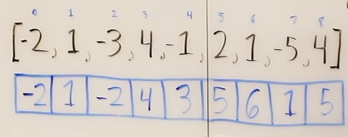 0 1 2 3 4 5 6 7 8
[-2, 1, -3, 4, -1, 2, 1, -5, 4]
-2 1 -2 4 3 5 6 1 5